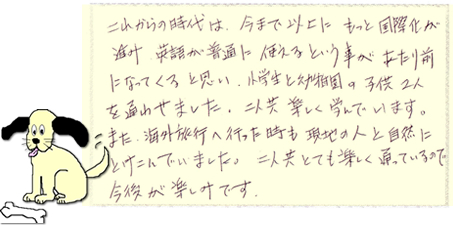 これからの時代は、今まで以上に もっと国際化が
進み 英語が普通に 使えるという事が あたり前
になってくると思い、小学生と幼稚園の子供 2人
を通わせました。二人共 楽しく学んでいます。
また、海外旅行へ行った時も 現地の人と自然に
とけこんでいました。 二人共とても楽しく通っているので
今後が楽しみです。